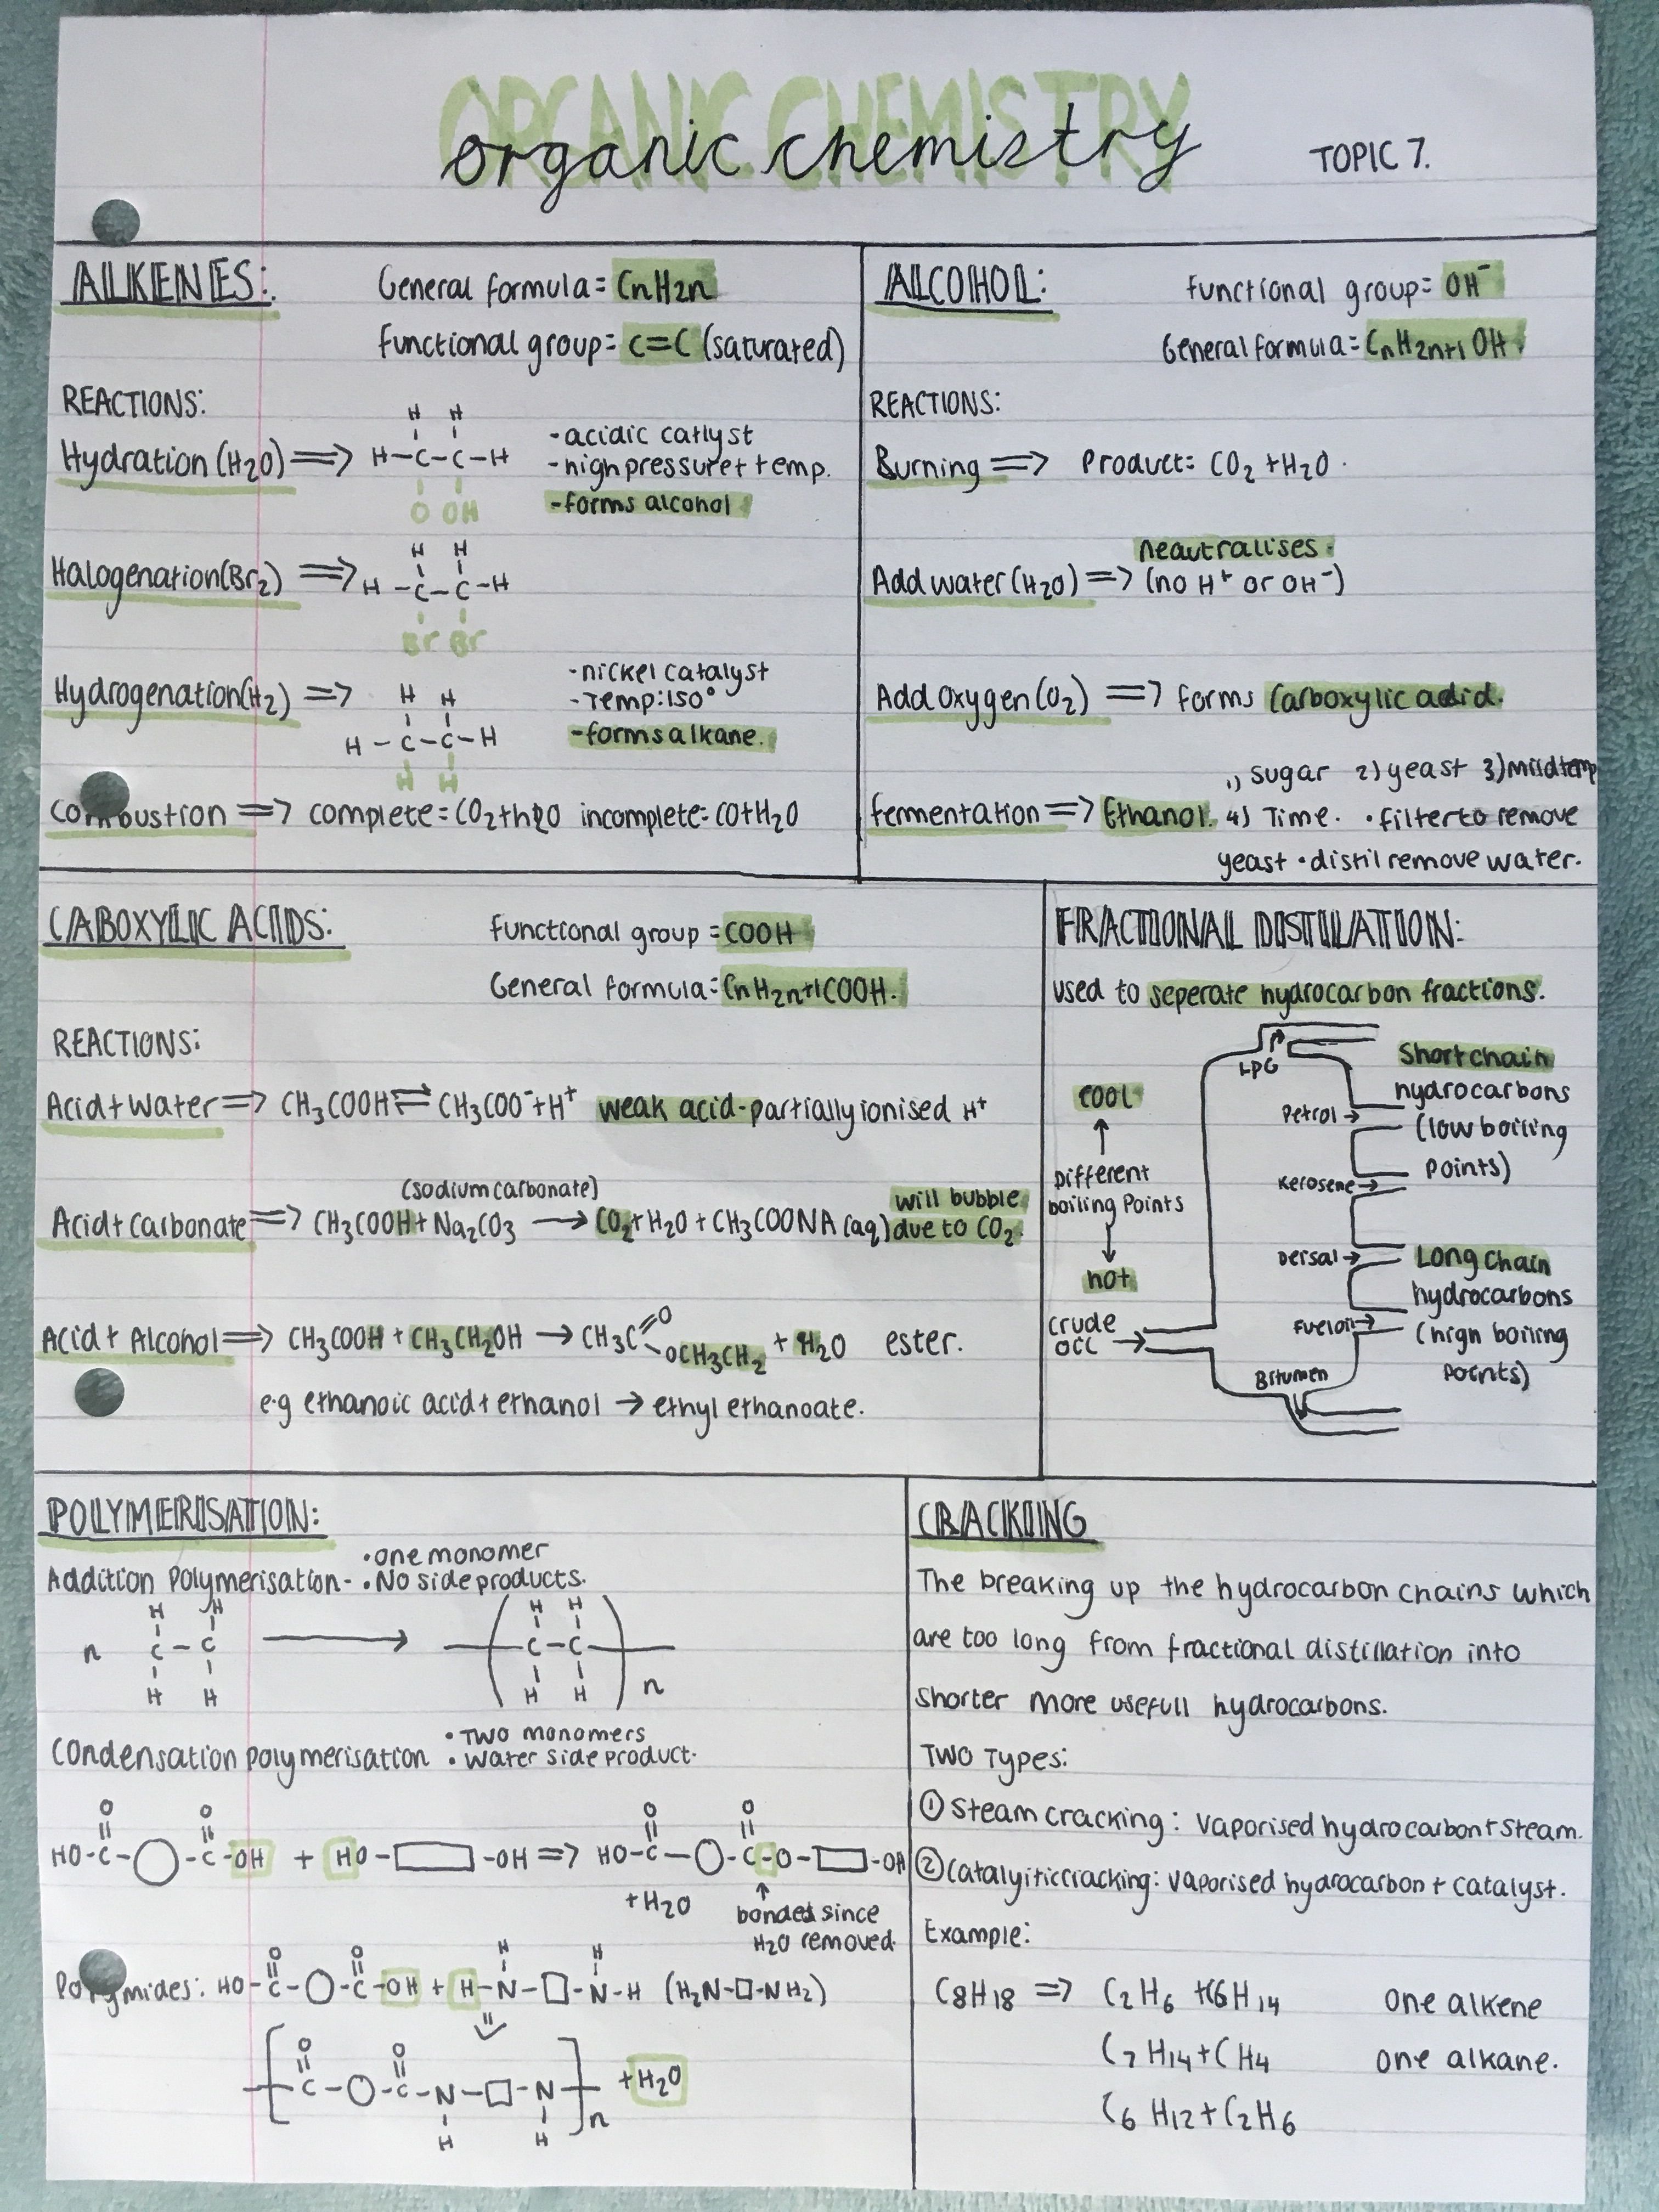 ORGANIC CHEMISTRY
organic chemistry
TOPIC 7.
ALKENES:
General formula = CnH2n
Functional group = C=C (saturated)
REACTIONS:
Hydration (H2O) ⇒
H H
H-C-C-H
O OH
-acidic catlyst
-high pressure + temp.
-forms alcohol
Halogenation(Br2) ⇒
H H
H-C-C-H
Br Br
Hydrogenation(H2) ⇒
H H
H-C-C-H
H H
-nickel catalyst
-Temp:150°
-forms alkane.
Combustion ⇒ complete = CO2+H2O incomplete = CO+H2O
ALCOHOL:
Functional group = OH⁻
General formula = CnH2n+1 OH.
REACTIONS:
Burning ⇒ Product: CO2 + H2O.
neautralises.
Add water (H2O) ⇒ (no H⁺ or OH⁻)
Add oxygen (O2) ⇒ forms Carboxylic acid.
1) sugar 2) yeast 3) mild temp
fermentation ⇒ Ethanol. 4) Time. • filter to remove
yeast • distil remove water.
CABOXYLIC ACIDS:
Functional group = COOH
General formula = CnH2n+1COOH.
REACTIONS:
Acid + Water ⇒ CH3COOH ⇌ CH3COO⁻ + H⁺ weak acid - partially ionised H⁺
(sodium carbonate)
Acid + Carbonate ⇒ CH3COOH + Na2CO3 → CO2 + H2O + CH3COONA (aq)
will bubble
due to CO2.
Acid + Alcohol ⇒ CH3COOH + CH3CH2OH → CH3C =O OCH3CH2 + H2O ester.
e.g ethanoic acid + ethanol → ethyl ethanoate.
FRACTIONAL DISTILATION:
used to seperate hydrocarbon fractions.
cool
↑
Different
boiling Points
↓
hot
crude
→
LPG
Petrol →
Kerosene →
→
Fuel oil →
Bitumen
Short chain
hydrocarbons
(low boiling
points)
Long chain
hydrocarbons
(high boiling
points)
POLYMERISATION:
Addition Polymerisation -
• one monomer
• No side products.
H H
n C-C
H H
→
H H
( C-C )
H H n
Condensation polymerisation
• TWO monomers
• Water side product.
O O O O
HO-C- -C-OH + HO- -OH ⇒ HO-C- -C-O- -OH
+H2O
↑
bonded since
H2O removed.
O O H H
HO-C- -C-OH + H-N- -N-H (H2N-□-NH2)
O O
[ C- -C-N- -N ] n + H2O
H H
CRACKING
The breaking up the hydrocarbon chains which
are too long from fractional distillation into
shorter more usefull hydrocarbons.
TWO Types:
① Steam cracking: vaporised hydrocarbon + steam.
② Catalyiticcracking: vaporised hydrocarbon + catalyst.
Example:
C8H18 ⇒ C2H6 + C6H14 one alkene
C7H14 + CH4 one alkane.
C6H12 + C2H6